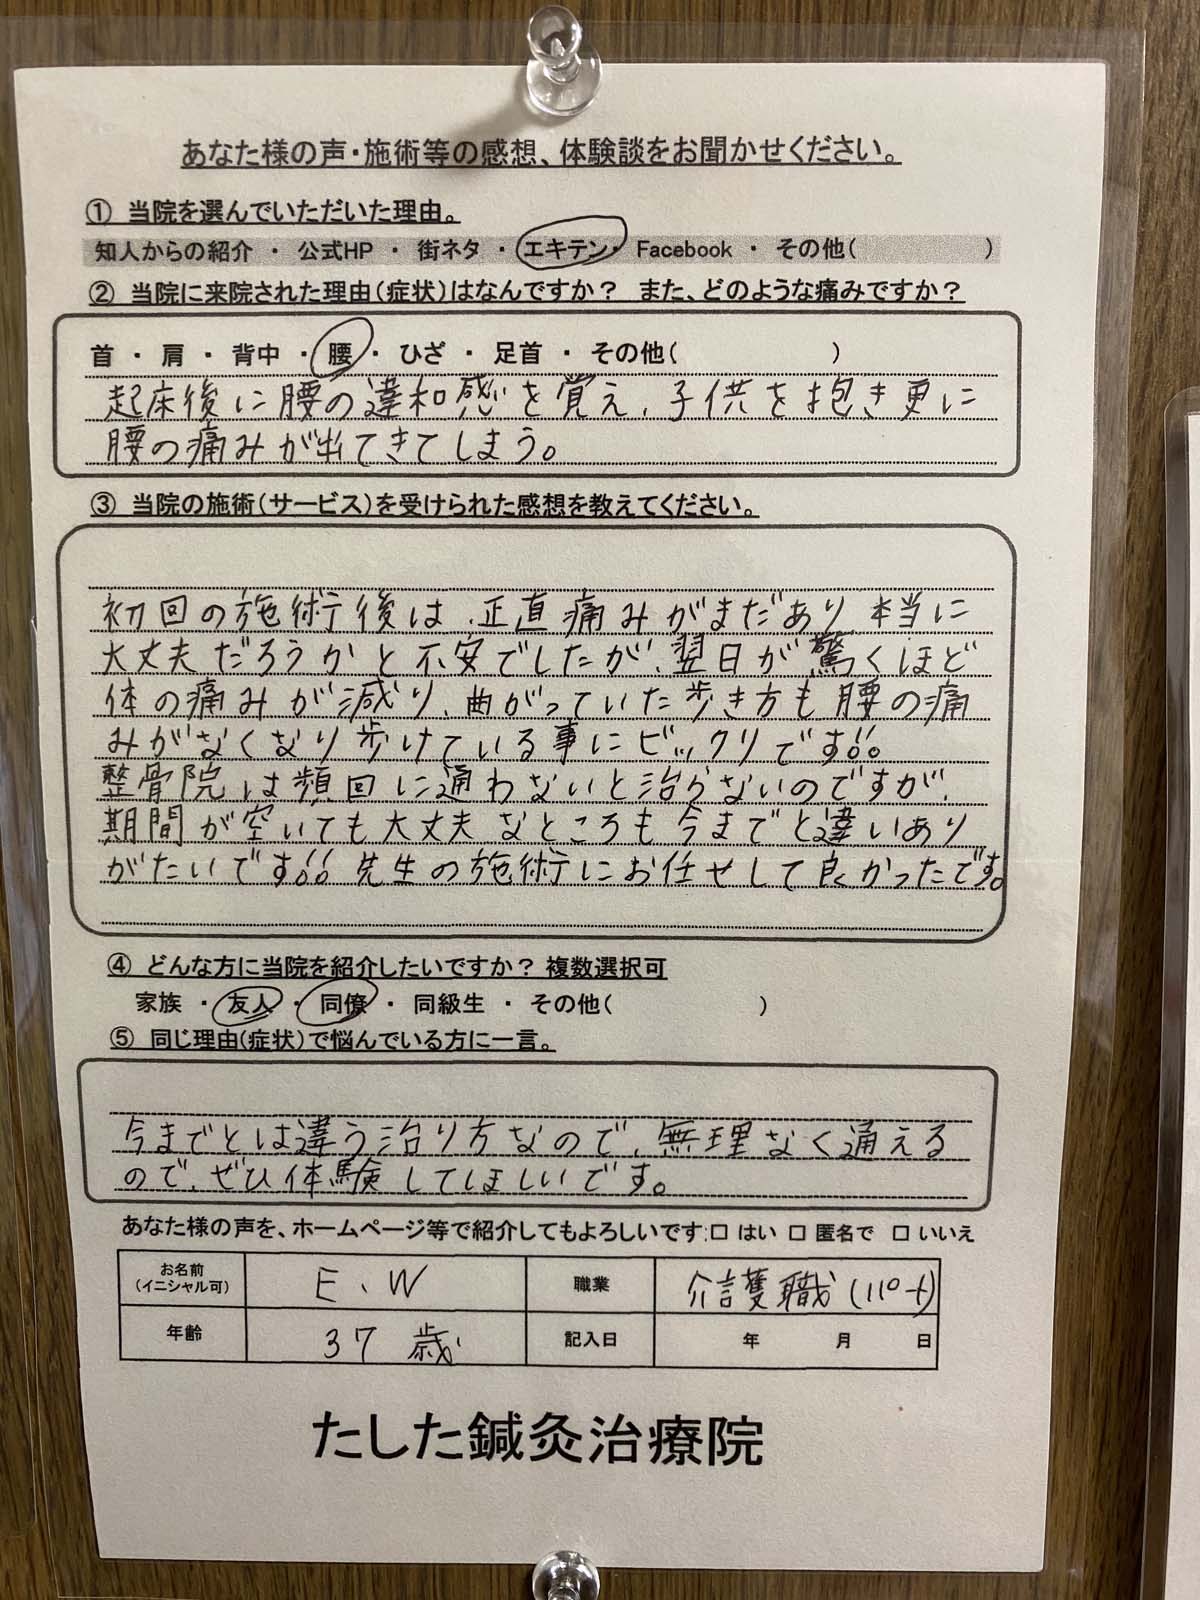 あなた様の声・施術等の感想、体験談をお聞かせください。
① 当院を選んでいただいた理由。
知人からの紹介 ・ 公式HP ・ 街ネタ ・ エキテン・ Facebook ・ その他( )
② 当院に来院された理由(症状)はなんですか? また、どのような痛みですか?
首 ・ 肩 ・ 背中 ・ 腰 ・ ひざ ・ 足首 ・ その他( )
起床後に腰の違和感を覚え、子供を抱き更に
腰の痛みが出てきてしまう。
③ 当院の施術(サービス)を受けられた感想を教えてください。
初回の施術後は、正直痛みがまだあり本当に
大丈夫だろうかと不安でしたが、翌日が驚くほど
体の痛みが減り、曲がっていた歩き方も腰の痛
みがなくなり歩けている事にビックリです!!
整骨院は頻回に通わないと治らないのですが、
期間が空いても大丈夫なところも今までと違いあり
がたいです!! 先生の施術にお任せして良かったです。
④ どんな方に当院を紹介したいですか? 複数選択可
家族 ・ 友人 ・ 同僚 ・ 同級生 ・ その他( )
⑤ 同じ理由(症状)で悩んでいる方に一言。
今までとは違う治り方なので、無理なく通える
ので、ぜひ体験してほしいです。
あなた様の声を、ホームページ等で紹介してもよろしいです:□ はい □ 匿名で □ いいえ
お名前 (イニシャル可) E、W 職業 介護職(パート)
年齢 37歳 記入日 年 月 日
たした鍼灸治療院